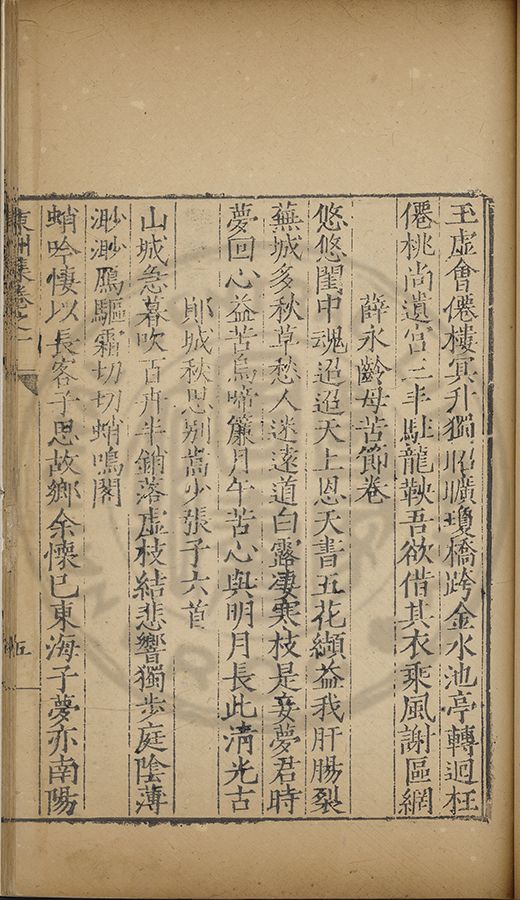 玉虛會僊樓冥升獨昭曠瓊橋跨金水池亭轉迴枉
僊桃尚遺宮三丰駐龍鞅吾欲借其衣乘風謝區網
薛永齡母苦節卷
悠悠閨中魂迢迢天上恩天書五花纈益我肝腸裂
蕪城多秋草愁人迷遠道白露淒寒枝是妾夢君時
夢回心益苦烏啼簾月午苦心與明月長此清光古
郎城秋思別嵩少張子六首
山城急暮吹百卉半銷落虛枝結悲響獨步庭陰薄
渺渺鴈驅霜切切蛸鳴閣
蛸吟悽以長客子思故鄉余懷已東海子夢亦南陽
東洲集卷之一
五